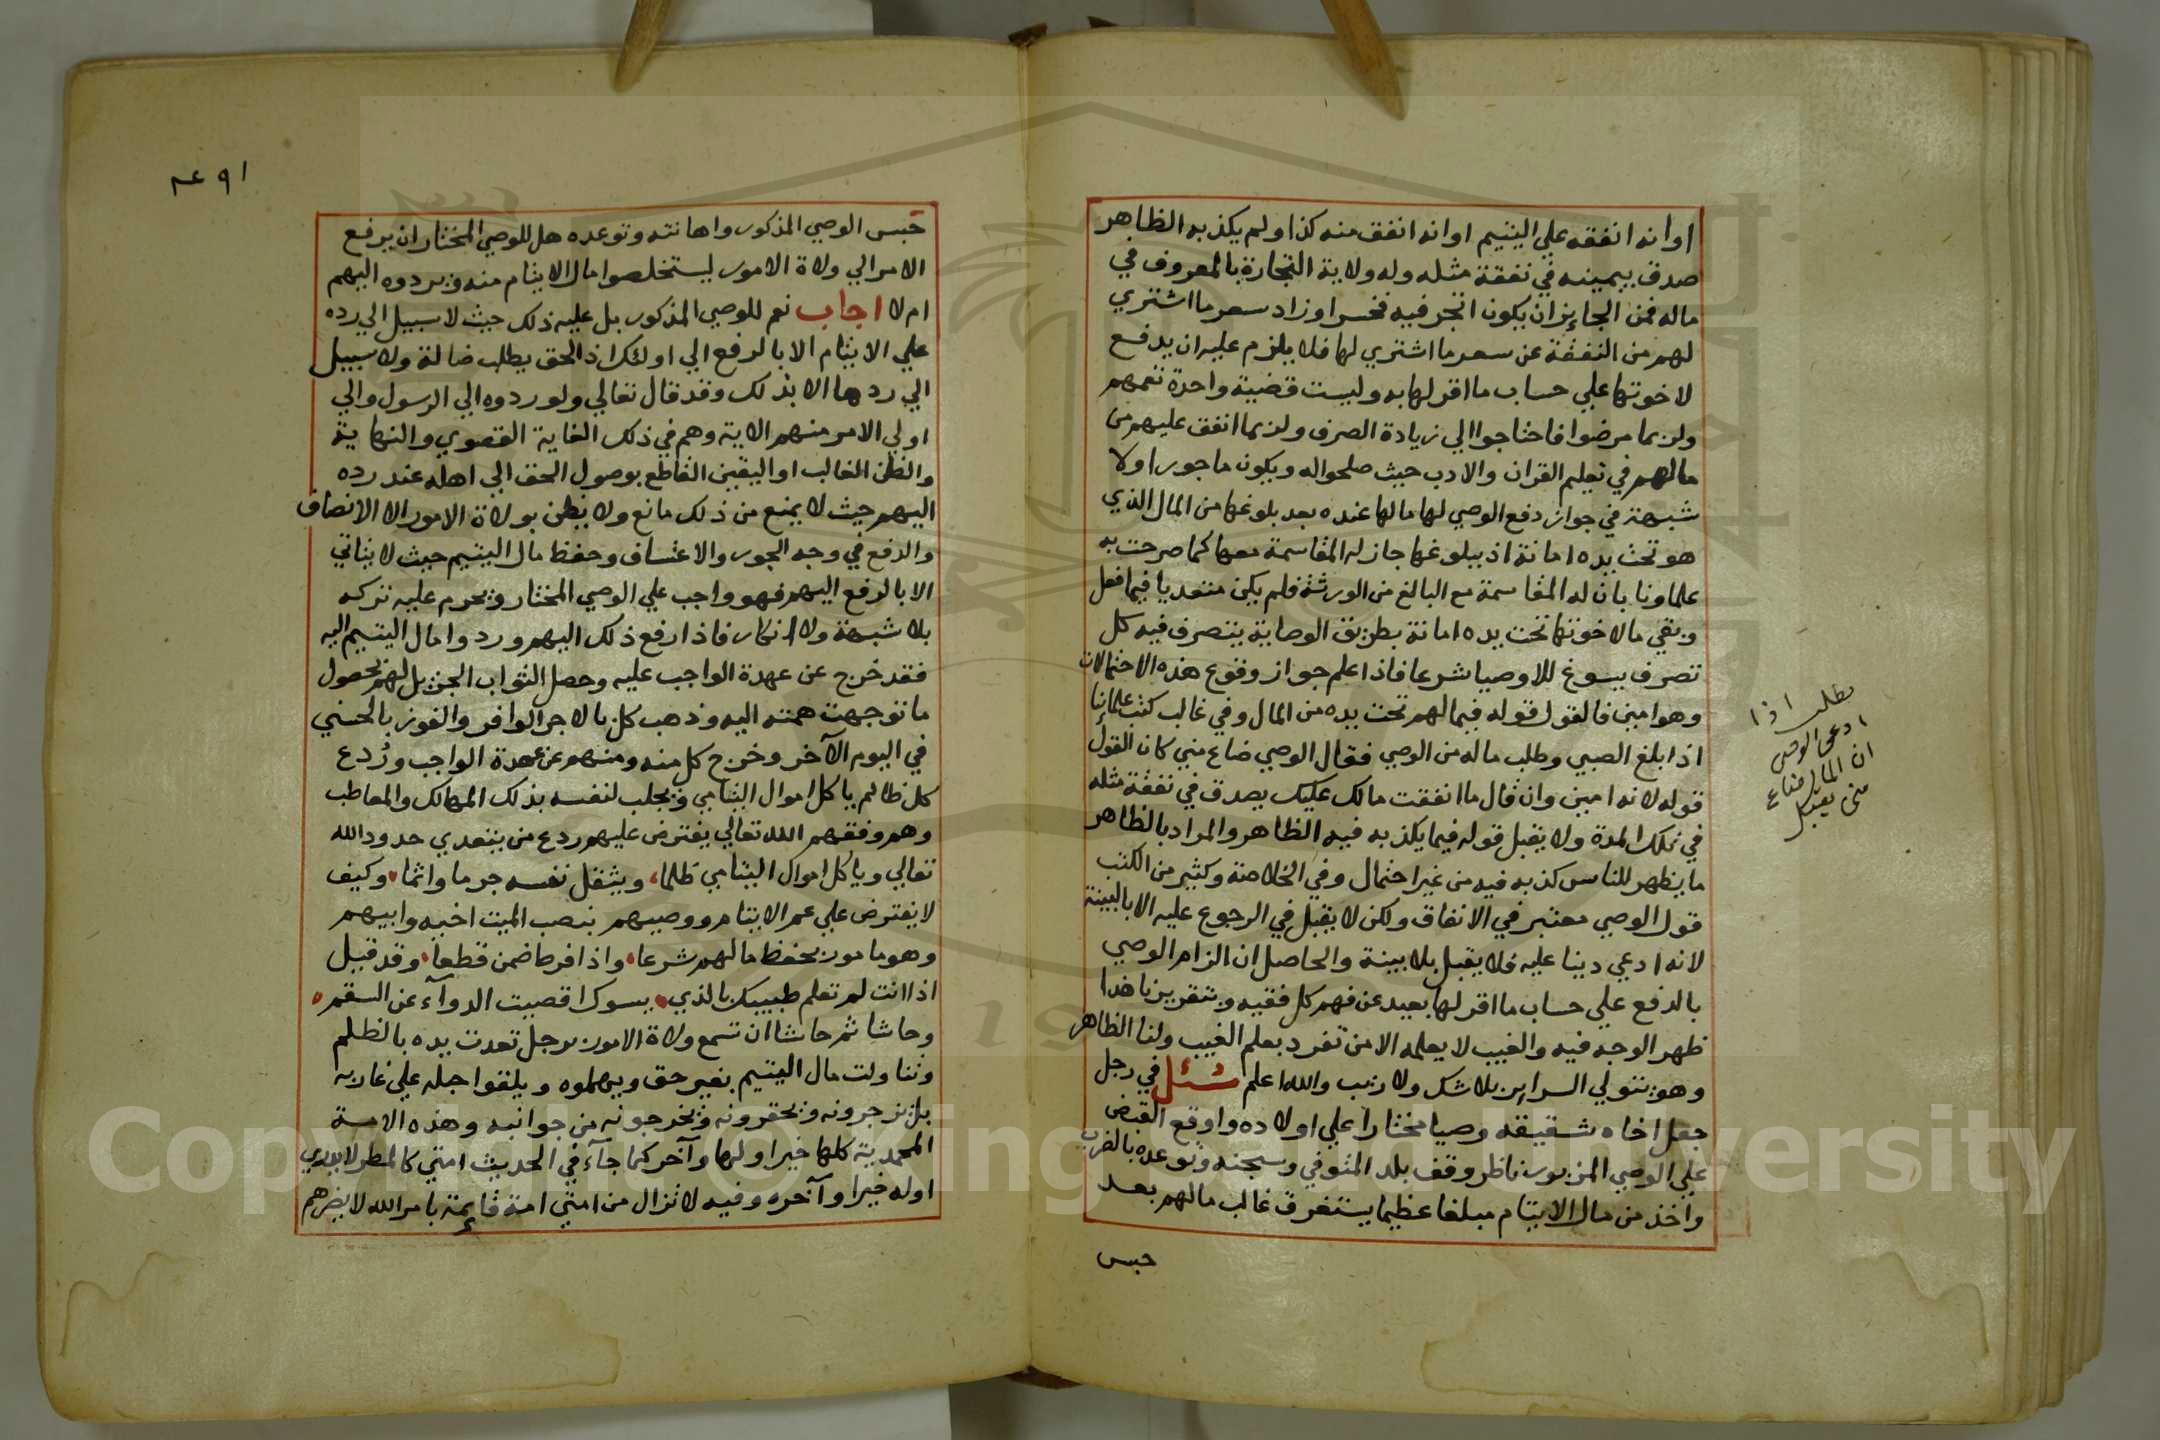 اوانه انفقه علي اليتيم اوانه انفق منه كذا ولم يكذبه الظاهر
صدق بيمينه في نفقة مثله وله ولاية التجارة بالمعروف في
ماله فمن الجايز ان يكون اتجر فيه فخسر او زاد سعر ما اشتري
لهم من النفقة عن سعر ما اشتري لها فلا يلزم عليه ان يدفع
لاخوتها علي حساب ما اقر لها به وليست قضية واحدة تعمهم
ولربما مرضوا فاحتاجوا الي زيادة الصرف ولربما انفق عليهم من
مالهم في تعليم القران والادب حيث صلحوا له ويكون ماجورا ولا
شبهة في جواز دفع الوصي لها مالها عنده بعد بلوغها من المال الذي
هو تحت يده امانة اذ ببلوغها جاز له المقاسمة معها كما صرحت به
علماونا بان له المقاسمة مع البالغ من الورثة فلم يكن متعديا فيما فعل
وبقي مال اخوتها تحت يده امانة بطريق الوصاية يتصرف فيه كل
تصرف يسوغ للاوصيا شرعا فاذا علم جواز وقوع هذه الاحتمالات
وهو امين فالقول قوله فيما لهم تحت يده من المال وفي غالب كتب علمائنا
اذا بلغ الصبي وطلب ماله من الوصي فقال الوصي ضاع مني كان القول
قوله لانه امين وان قال ما انفقت مالك عليك يصدق في نفقة مثله
في تلك المدة ولا يقبل قوله فيما يكذبه فيه الظاهر والمراد بالظاهر
ما يظهر للناس كذبه فيه من غير احتمال وفي الخلاصة وكثير من الكتب
قول الوصي معتبر في الانفاق ولكن لا يقبل في الرجوع عليه الا بالبينة
لانه ادعي دينا عليه فلا يقبل بلا بينة والحاصل ان الزام الوصي
بالدفع علي حساب ما اقر لها بعيد عن فهم كل فقيه وبتقريرنا هذا
ظهر الوجه فيه والغيب لا يعلمه الا من تفرد بعلم الغيب ولنا الظاهر
وهو يتولي السراير بلا شك ولا ريب والله اعلم سئل في رجل
جعل اخاه شقيقه وصيا مختارا علي اولاده واوقع القبض
علي الوصي المزبور ناظر وقف بلد المتوفي وسجنه وتوعده بالضرب
واخذ من مال الايتام مبلغا عظيما يستغرق غالب مالهم بعد
حبس
مطلب اذا
ادعى الوصي
ان المال ضاع
مني يقبل
٤٩١
حبس الوصي المذكور واهانته وتوعده هل للوصي المختار ان يرفع
الامر الي ولاة الامور ليستخلصوا مال الايتام منه ويردوه اليهم
ام لا اجاب نعم للوصي المذكور بل عليه ذلك حيث لا سبيل الي رده
علي الايتام الا بالرفع الي اولئك اذ الحق يطلب ضالة ولا سبيل
الي ردها الا بذلك وقد قال تعالي ولو ردوه الي الرسول والي
اولي الامر منهم الاية وهم في ذلك الغاية القصوي والنهاية
والظن الغالب او اليقين القاطع بوصول الحق الي اهله عند رده
اليهم حيث لا يمنع من ذلك مانع ولا يظن بولاة الامور الا الانصاف
والدفع في وجه الجور والاعتساف وحفظ مال اليتيم حيث لا يتاتي
الا بالرفع اليهم فهو واجب علي الوصي المختار ويحرم عليه تركه
بلا شبهة ولا انكار فاذا رفع ذلك اليهم وردوا مال اليتيم اليه
فقد خرج عن عهدة الواجب عليه وحصل الثواب الجزيل لهم بحصول
ما توجهت همته اليه وذهب كل بالاجر الوافر والفوز بالحسني
في اليوم الآخر وخرج كل منه ومنهم عن عهدة الواجب وردع
كل ظالم ياكل اموال اليتامي ويجلب لنفسه بذلك المهالك والمعاطب
وهم وفقهم الله تعالي يفترض عليهم ردع من يتعدي حدود الله
تعالي وياكل اموال اليتامي ظلما، ويثقل نفسه جرما واثما، وكيف
لا يفترض علي عم الايتام ووصيهم بنصب الميت اخيه وابيهم
وهو مامور بحفظ مالهم شرعا، واذا فرط ضمن قطعا، وقد قيل
اذا انت لم تعلم طبيبك بالذي يسوك اقصيت الدوآء عن السقم
وحاشا ثم حاشا ان تسمع ولاة الامور برجل تعدت يده بالظلم
وتناولت مال اليتيم بغير حق ويهملوه ويلقوا حبله علي غاربه
بل يزجرونه ويحقرونه ويخرجونه من جوانبه وهذه الامة
المحمدية كلها خير اولها وآخر كما جآء في الحديث امتي كالمطر لا يدري
اوله خير او آخره وفيه لا تزال من امتي امة قايمة بامر الله لا يضرهم
Copyright © King Saud University